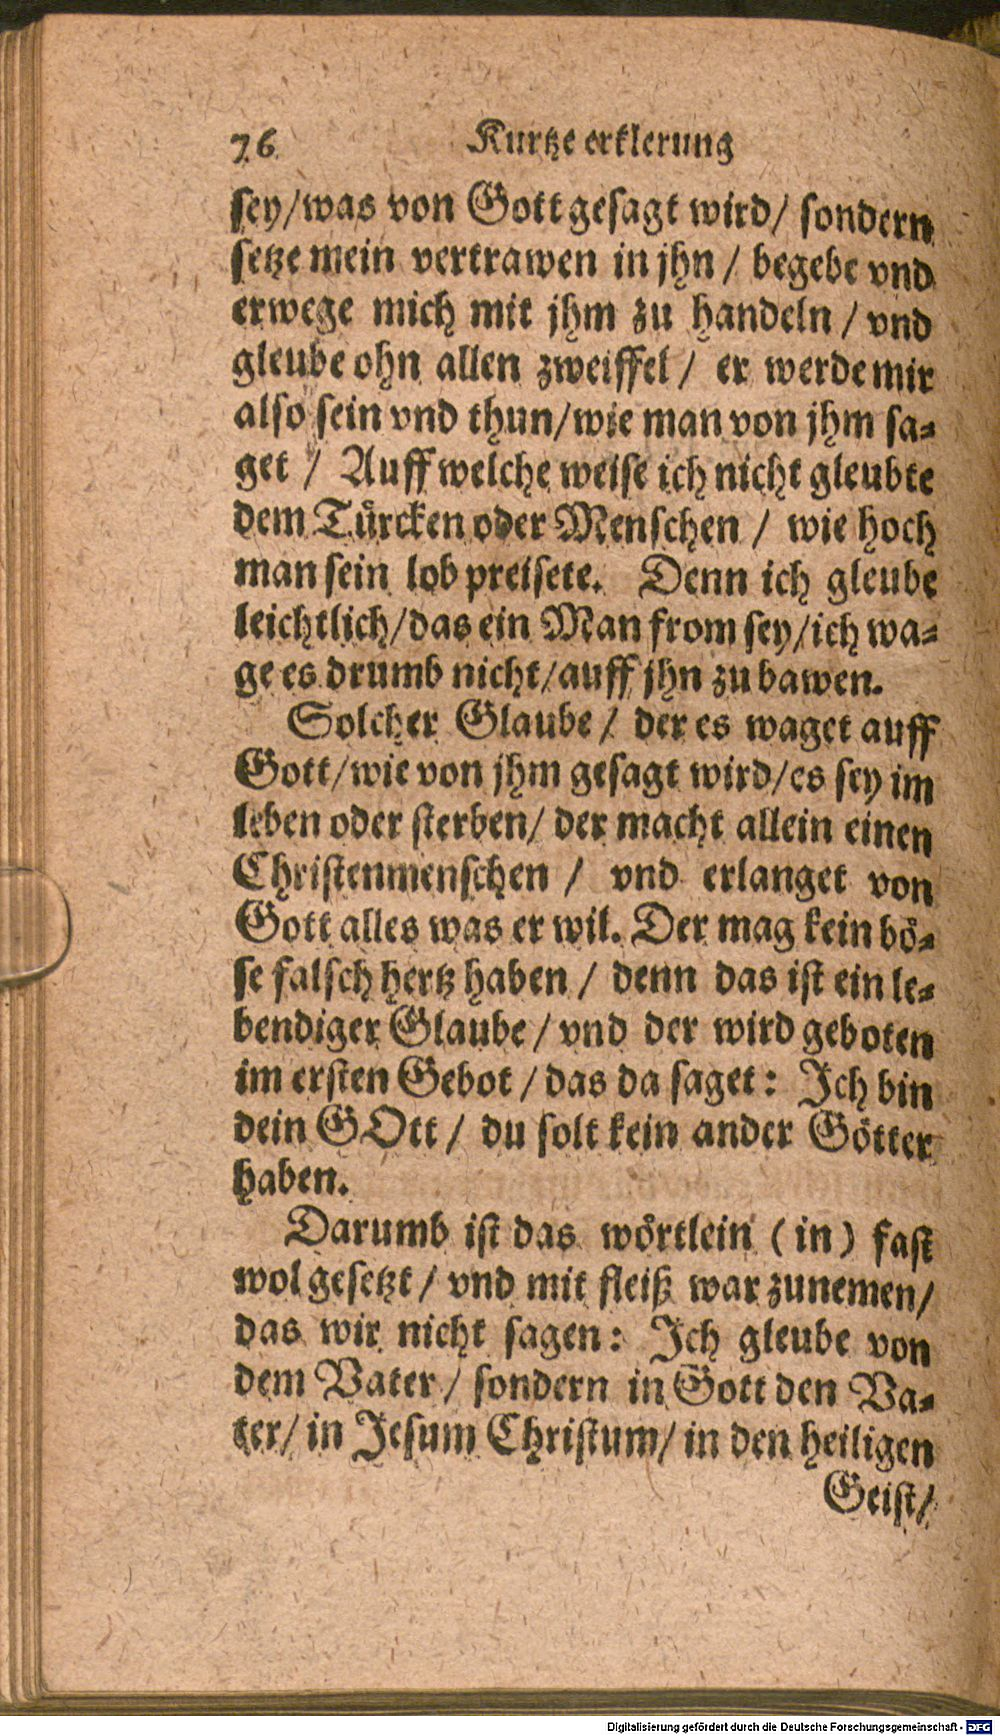 76 Kurtze erklerung
sey/was von Gott gesagt wird/ sondern
setze mein vertrawen in jhn / begebe vnd
erwege mich mit jhm zu handeln / vnd
gleube ohn allen zweiffel / er werde mir
also sein vnd thun/wie man von jhm sa-
get / Auff welche weise ich nicht gleubte
dem Türcken oder Menschen / wie hoch
man sein lob preisete. Denn ich gleube
leichtlich/das ein Man from sey/ich wa-
ge es drumb nicht/auff jhn zu bawen.
Solcher Glaube / der es waget auff
Gott/wie von jhm gesagt wird/es sey im
leben oder sterben/ der macht allein einen
Christenmenschen / vnd erlanget von
Gott alles was er wil. Der mag kein bö-
se falsch hertz haben / denn das ist ein le-
bendiger Glaube / vnd der wird geboten
im ersten Gebot / das da saget: Ich bin
dein GOtt / du solt kein ander Götter
haben.
Darumb ist das wörtlein (in) fast
wol gesetzt / vnd mit fleiß war zunemen/
das wir nicht sagen: Ich gleube von
dem Vater / sondern in Gott den Va-
ter/ in Jesum Christum/ in den heiligen
Geist/
Digitalisierung gefördert durch die Deutsche Forschungsgemeinschaft - DFG